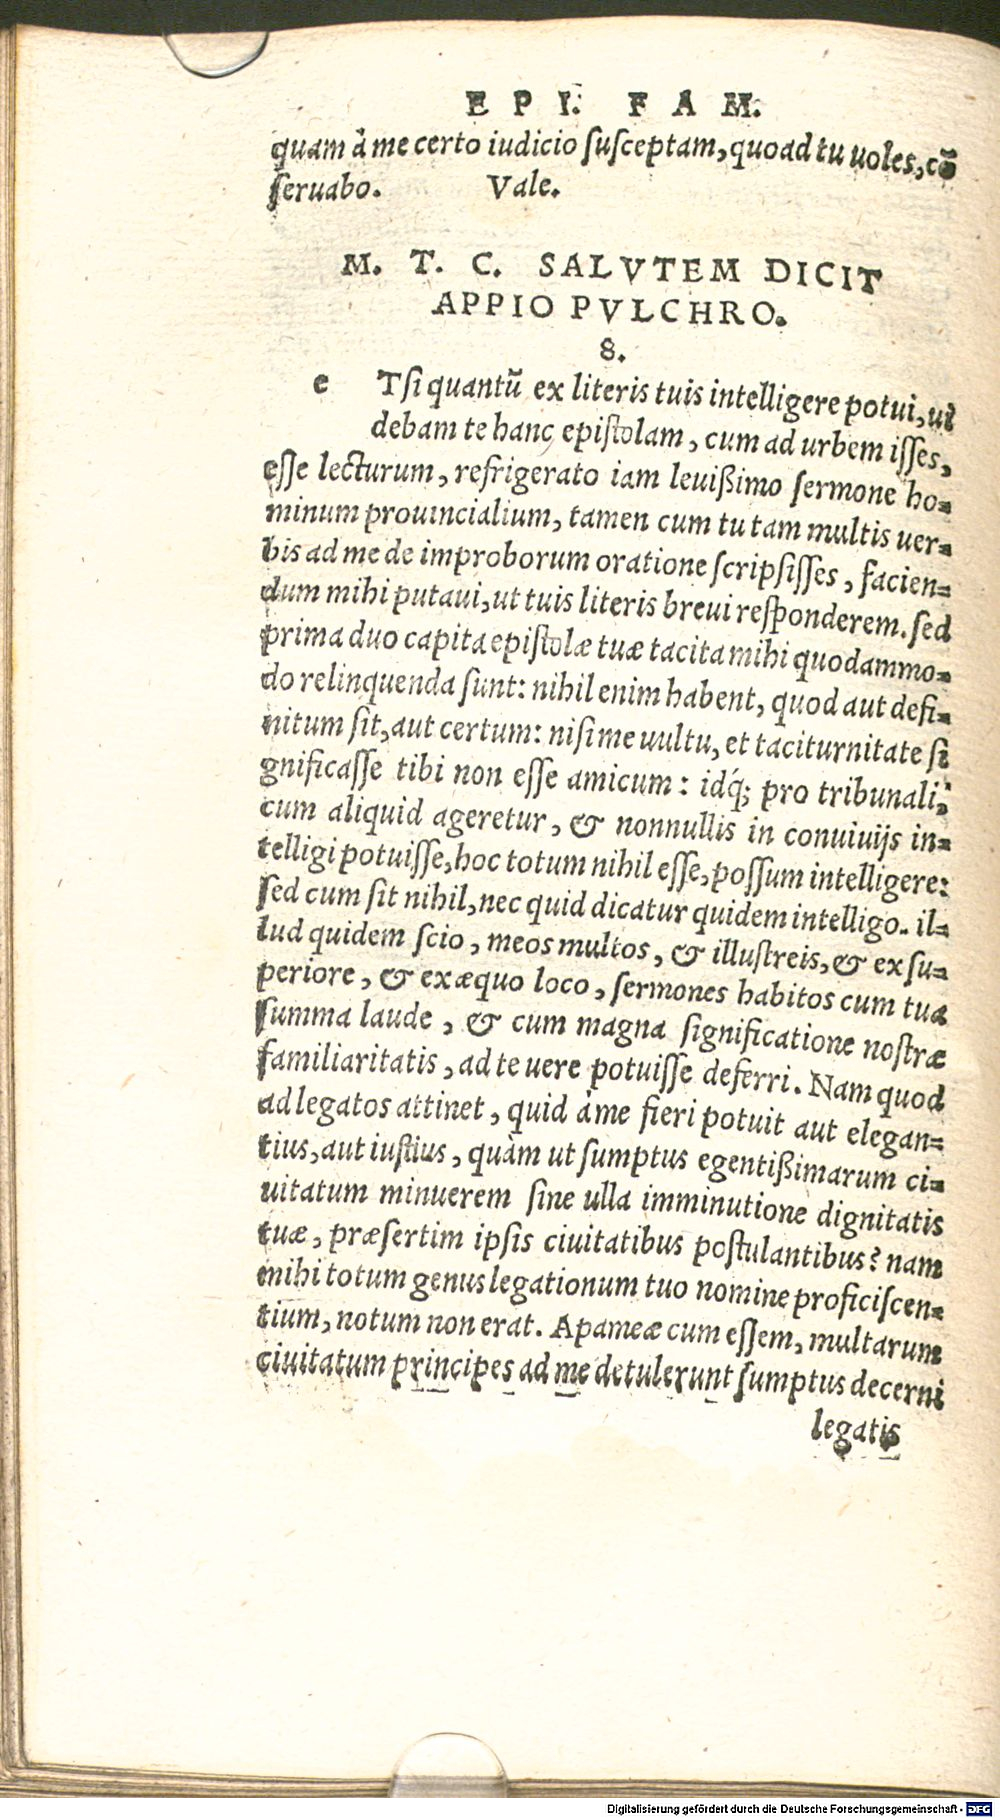 EPI. FAM.
quam à me certo iudicio susceptam, quoad tu uoles, cõ
seruabo. Vale.
M. T. C. SALVTEM DICIT
APPIO PVLCHRO.
8.
e Tsi quantũ ex literis tuis intelligere potui, ui
debam te hanc epistolam, cum ad urbem isses,
esse lecturum, refrigerato iam leuißimo sermone ho-
minum prouincialium, tamen cum tu tam multis uer-
bis ad me de improborum oratione scripsisses, facien-
dum mihi putaui, ut tuis literis breui responderem. sed
prima duo capita epistolæ tuæ tacita mihi quodammo-
do relinquenda sunt: nihil enim habent, quod aut defi-
nitum sit, aut certum: nisi me uultu, et taciturnitate si
gnificasse tibi non esse amicum: idq́; pro tribunali,
cum aliquid ageretur, & nonnullis in conuiuijs in-
telligi potuisse, hoc totum nihil esse, possum intelligere:
sed cum sit nihil, nec quid dicatur quidem intelligo. il-
lud quidem scio, meos multos, & illustreis, & ex su-
periore, & ex æquo loco, sermones habitos cum tua
summa laude, & cum magna significatione nostræ
familiaritatis, ad te uere potuisse deferri. Nam quod
ad legatos attinet, quid à me fieri potuit aut elegan-
tius, aut iustius, quàm ut sumptus egentißimarum ci-
uitatum minuerem sine ulla imminutione dignitatis
tuæ, præsertim ipsis ciuitatibus postulantibus? nam
mihi totum genus legationum tuo nomine proficiscen-
tium, notum non erat. Apameæ cum essem, multarum
ciuitatum principes ad me detulerunt sumptus decerni
legatis
Digitalisierung gefördert durch die Deutsche Forschungsgemeinschaft - DFG